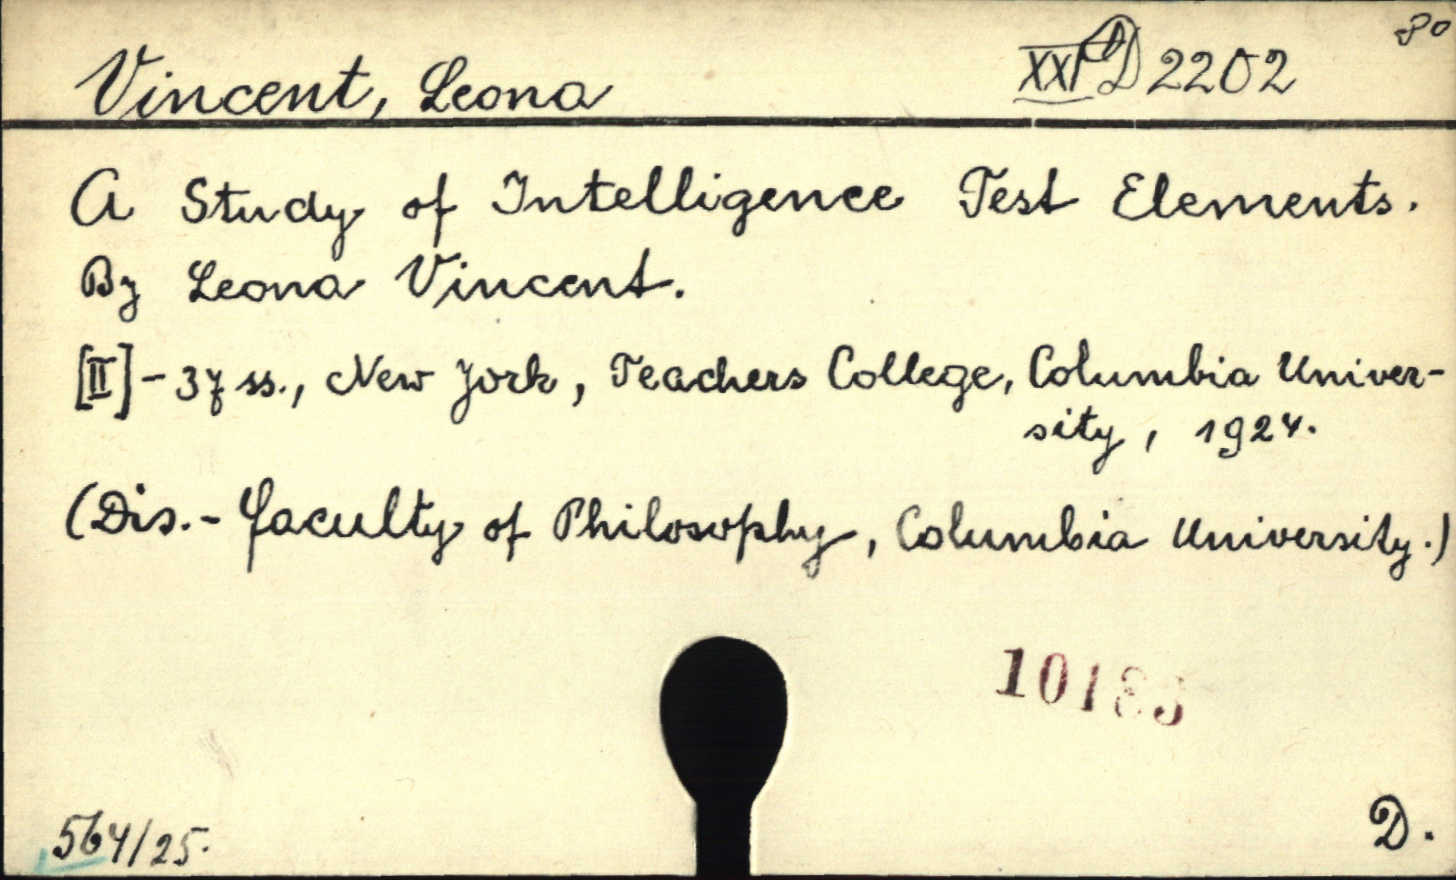 8°
Vincent, Leona XXI D 2202
A Study of Intelligence Test Elements.
By Leona Vincent.
[II] - 37 ss., New York, Teachers College, Columbia Univer-
sity, 1924.
(Dis. - Faculty of Philosophy, Columbia University.)
564/25.
D.